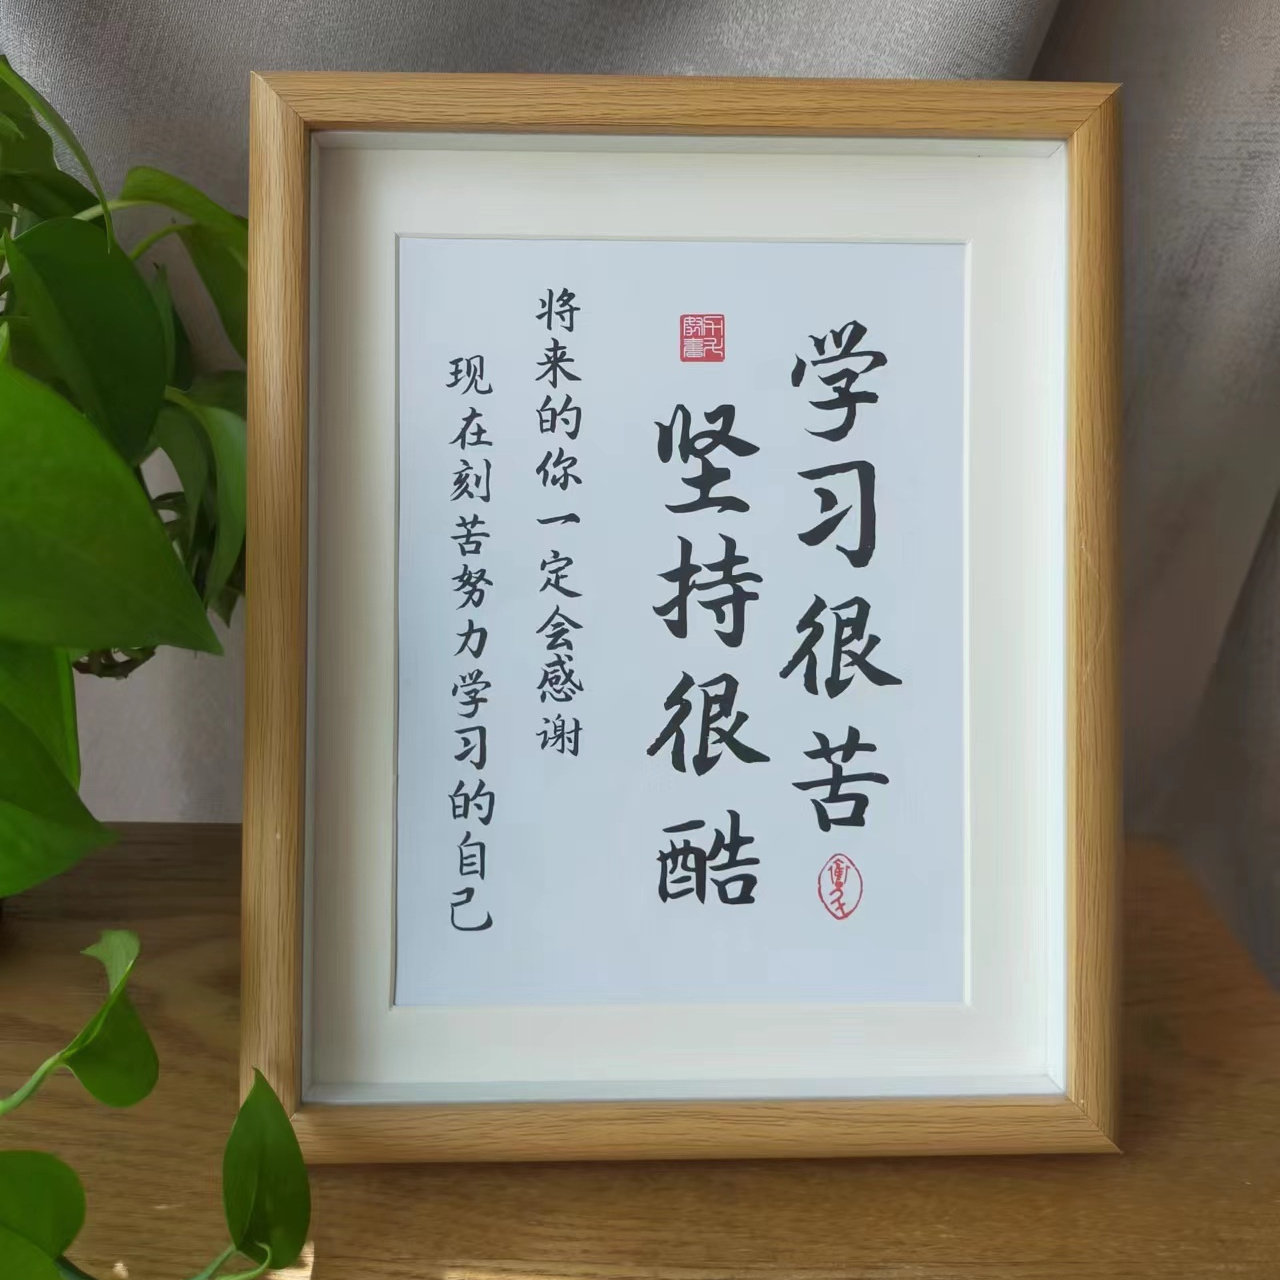 学习很苦
坚持很酷
将来的你一定会感谢
现在刻苦努力学习的自己